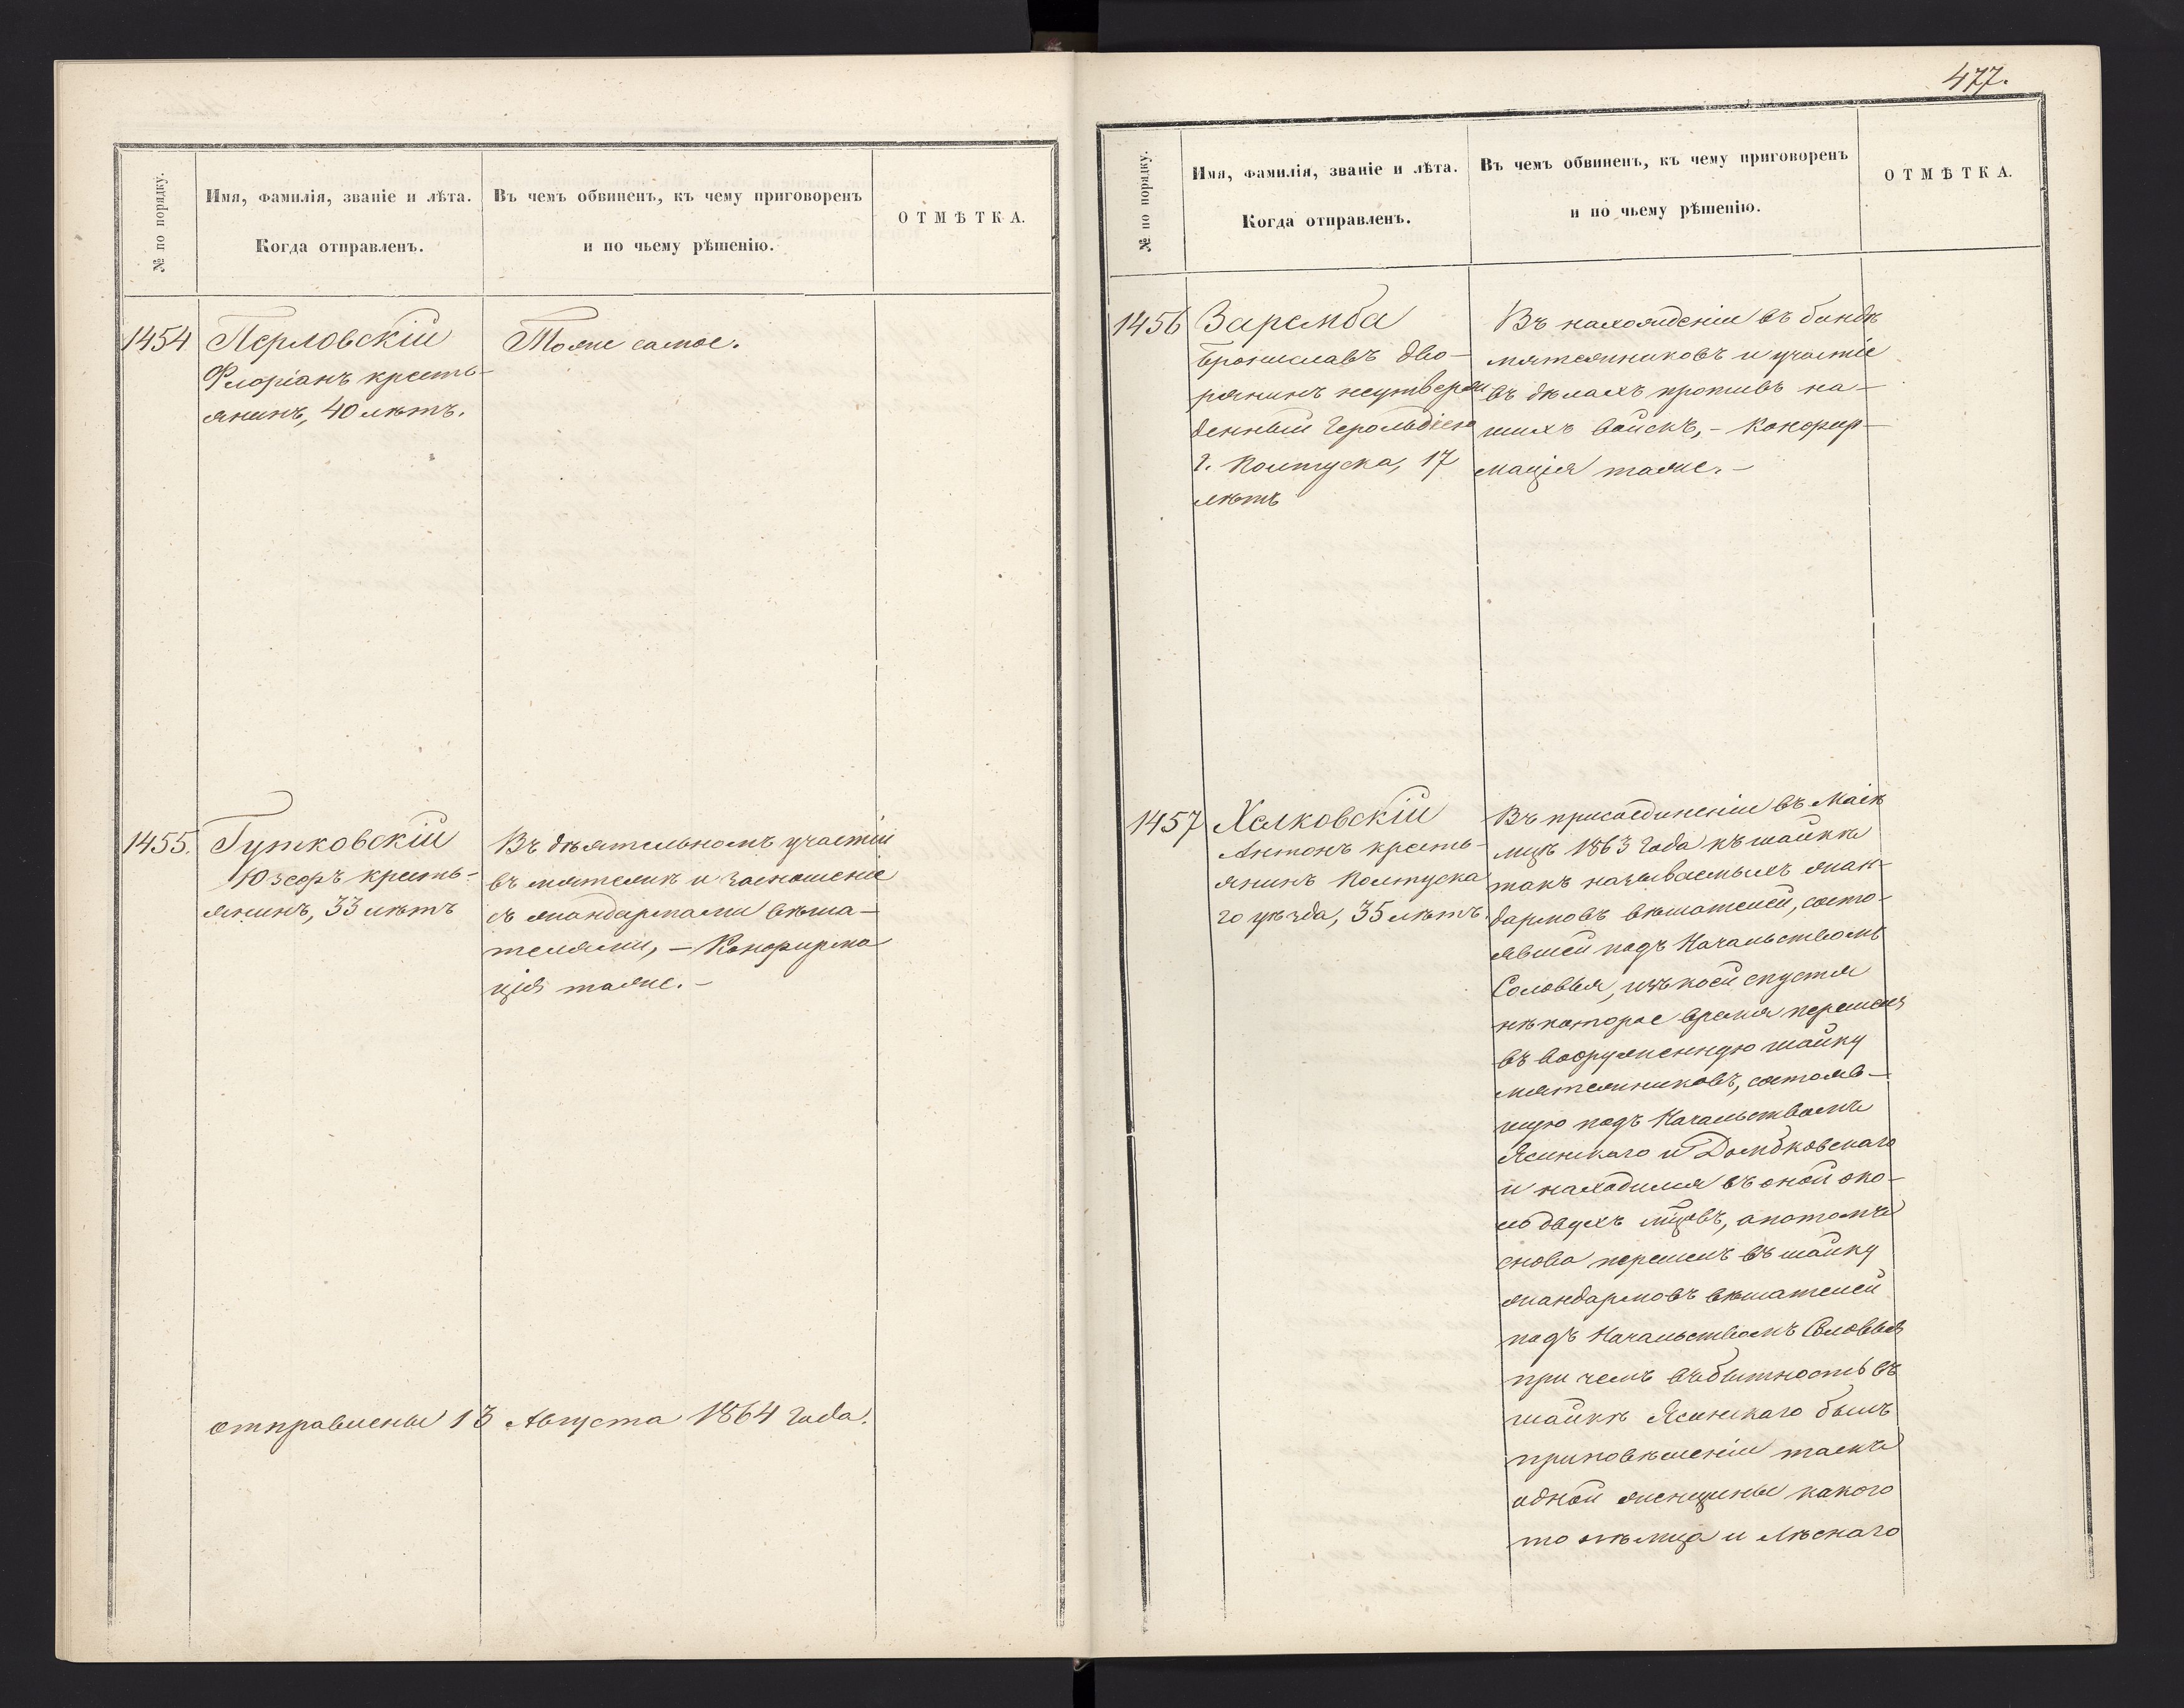 № по порядку.
Имя, фамилія, званіе и лѣта.
Когда отправленъ.
Въ чемъ обвиненъ, къ чему приговоренъ
и по чьему рѣшенію.
ОТМѢТКА.
1454
Перловскій
Флоріанъ кресть-
янинъ, 40 лѣтъ.
Тоже самое.
1455.
Гутковскій
Юзефъ кресть-
янинъ, 33 лѣтъ
Въ дѣятельномъ участіи
въ мятежѣ и за сношеніе
съ жандармами вѣша-
телями, – Конфирма
ція таже. –
отправлены 13 Августа 1864 года.
477.
№ по порядку.
Имя, фамилія, званіе и лѣта.
Когда отправленъ.
Въ чемъ обвиненъ, къ чему приговоренъ
и по чьему рѣшенію.
ОТМѢТКА.
1456
Заремба
Брониславъ дво-
рянинъ неутверж
денный Герольдіею
г. Полтуска, 17
лѣтъ
Въ нахожденіи въ бандѣ
мятежниковъ и участіе
въ дѣлахъ противъ на-
шихъ войскъ, – Конфир-
мація таже. –
1457
Хелковскій
Антонъ кресть-
янинъ Полтуска
го уѣзда, 35 лѣтъ.
Въ присоединеніи въ Маѣ
мцѣ 1863 года къ шайкѣ
такъ называемыхъ жан-
дармовъ вѣшателей, состо-
явшей подъ Начальствомъ
Соловья, изъ коей спустя
нѣкоторое время перешелъ
въ вооруженную шайку
мятежниковъ, состояв-
шую подъ Начальствомъ
Ясинскаго и Домбковскаго
и находился въ оной око-
ло двухъ мцовъ, а потомъ
снова перешелъ въ шайку
жандармовъ вѣшателей
подъ Начальствомъ Соловья
при чемъ въ бытность въ
шайкѣ Ясинскаго былъ
при повѣшеніи
одной женщины какого
то нѣмца и лѣснаго